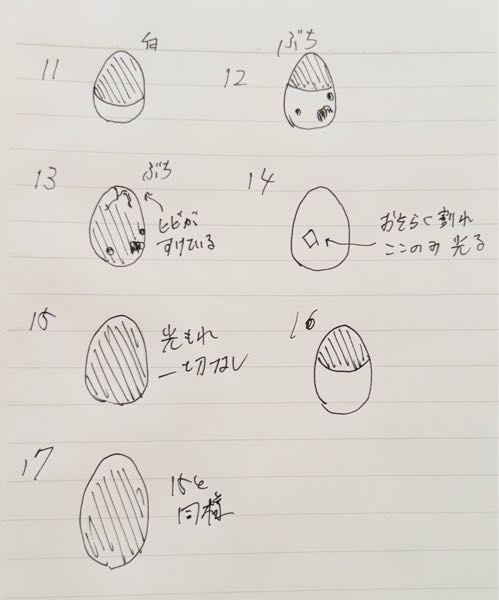 11
白
12
ぶち
13
ぶち
ヒビが
すけている
14
おそらく割れ
ここのみ光る
15
光もれ
一切なし
16
17
15と
同様